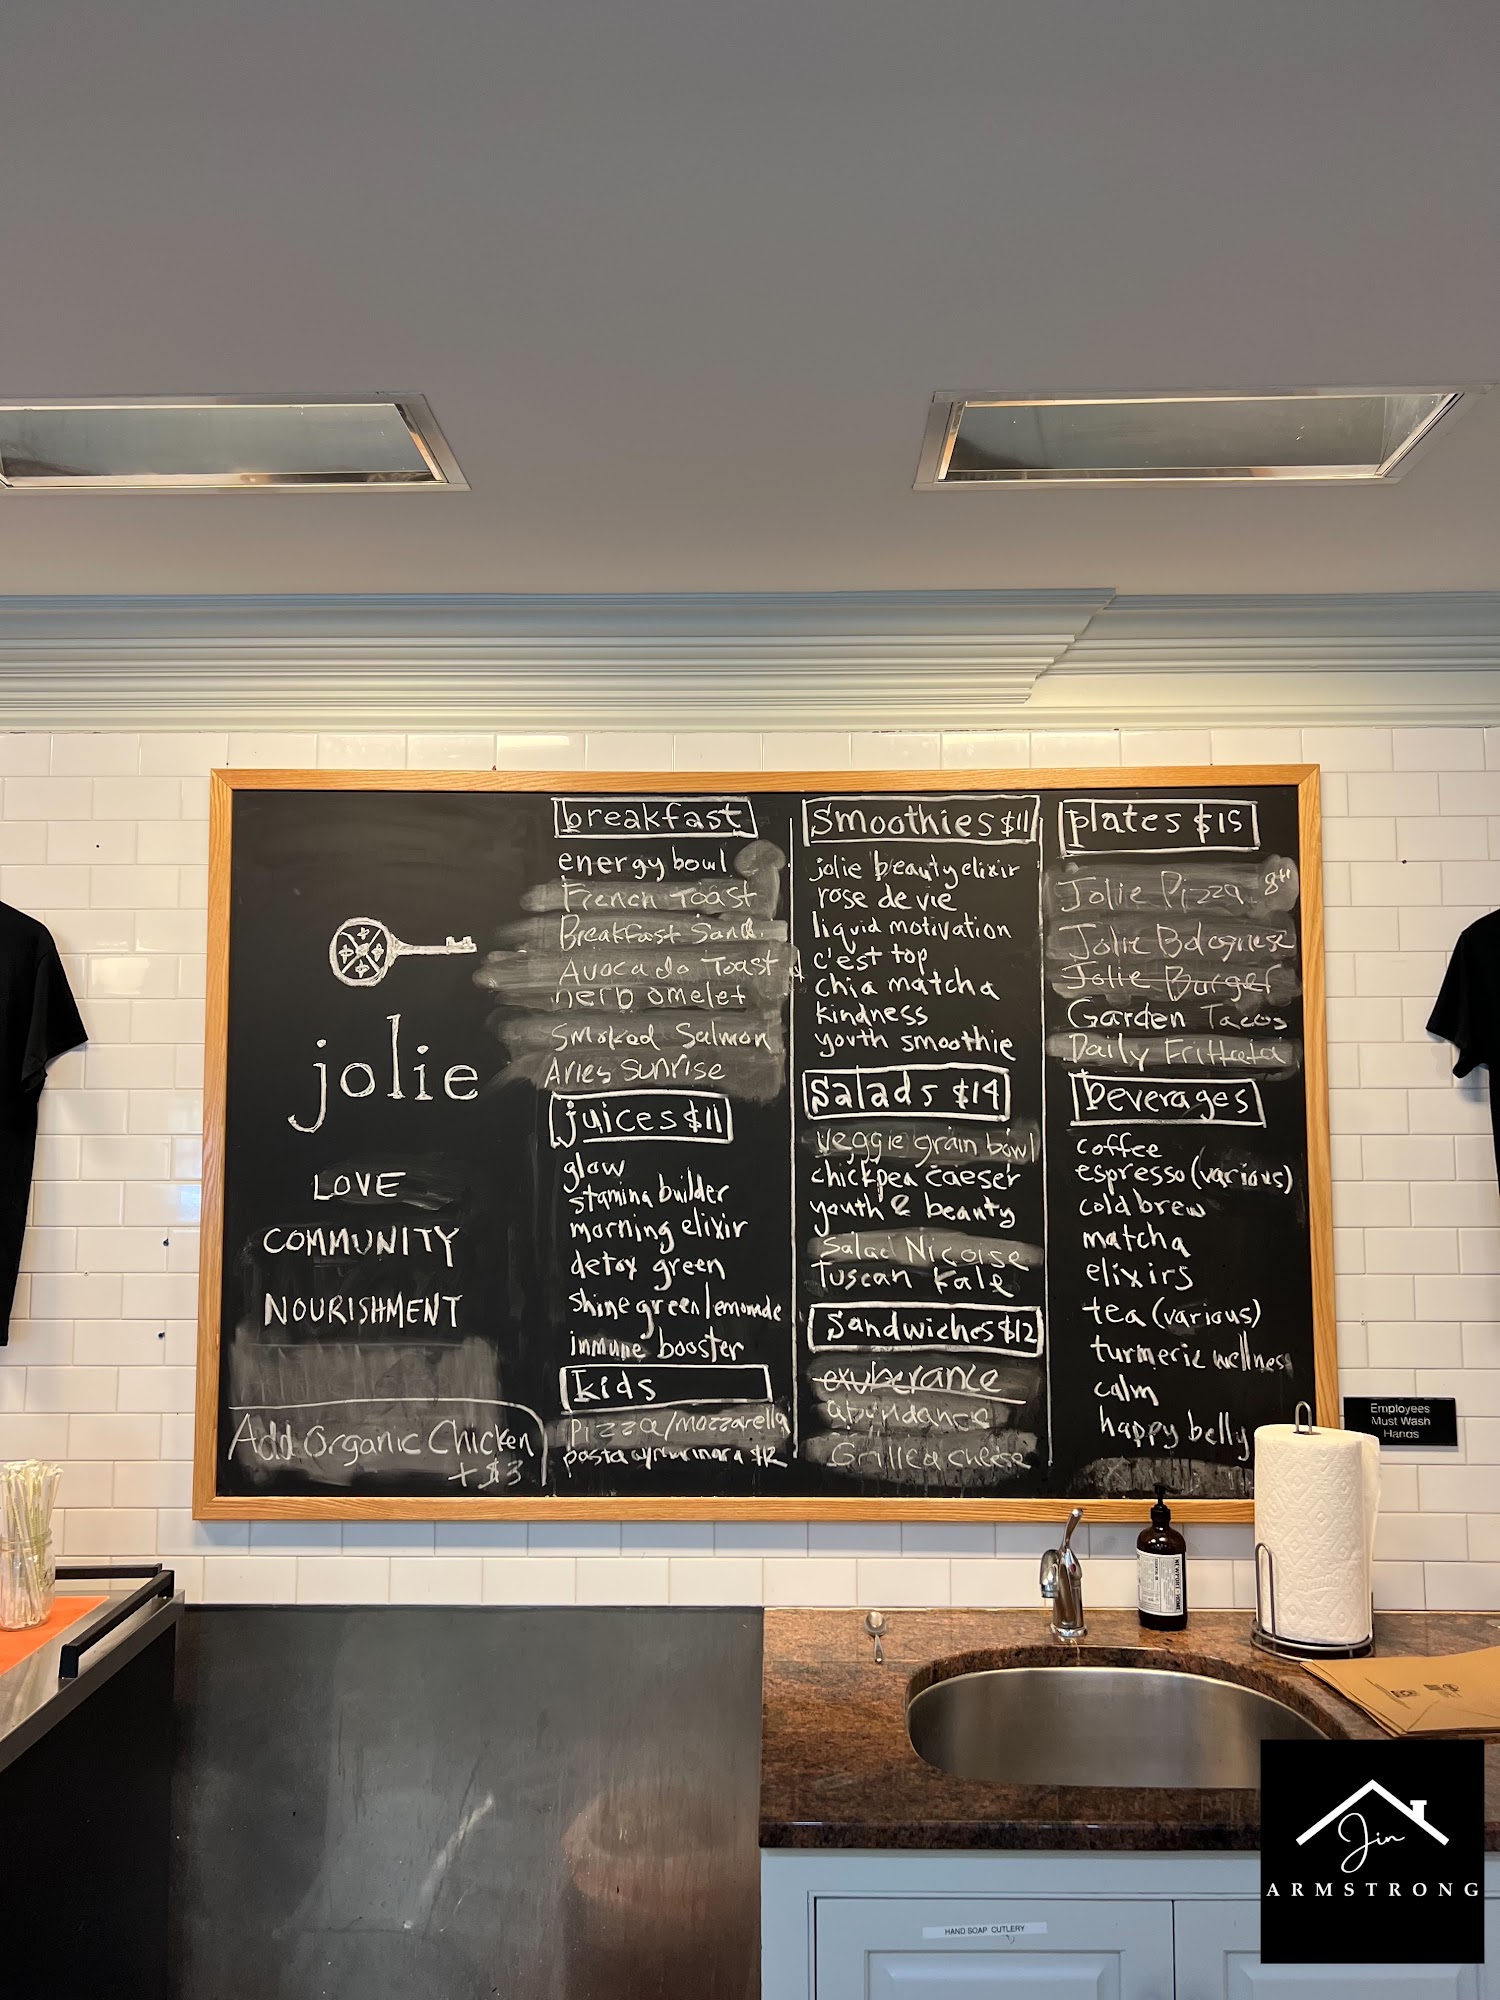 jolie
LOVE
COMMUNITY
NOURISHMENT
Add Organic Chicken
+ $3
breakfast
energy bowl
French Toast
Breakfast Sand.
Avocado Toast
herb omelet
Smoked Salmon
Aries Sunrise
juices $11
glow
stamina builder
morning elixir
detox green
shine green lemonade
immune booster
kids
Pizza/mozzarella
pasta w/marinara $12
Smoothies $11
jolie beauty elixir
rose de vie
liquid motivation
c'est top
chia matcha
kindness
youth smoothie
Salads $14
veggie grain bowl
chickpea caeser
youth & beauty
Salad Nicoise
Tuscan Kale
Sandwiches $12
exuberance
abundance
Grilled cheese
plates $15
Jolie Pizza 8"
Jolie Bolognese
Jolie Burger
Garden Tacos
Daily Frittata
beverages
coffee
espresso (various)
cold brew
matcha
elixirs
tea (various)
turmeric wellness
calm
happy belly
Employees
Must Wash
Hands
HAND SOAP CUTLERY
Jin
ARMSTRONG